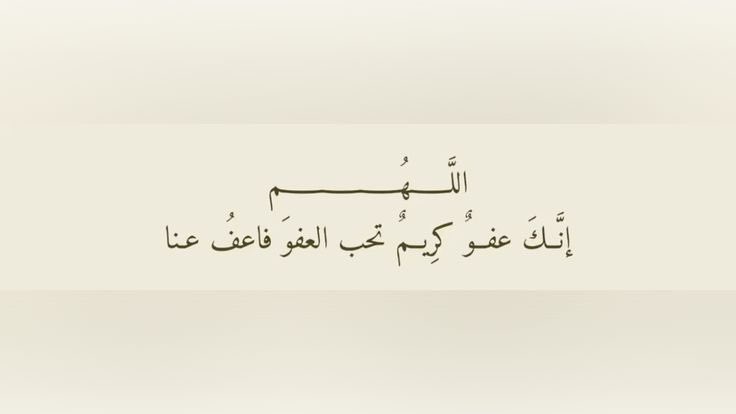 اللَّـــهُـــــــــم
إنَّـكَ عفـوٌ كرِيـمٌ تحب العفوَ فاعفُ عـنا